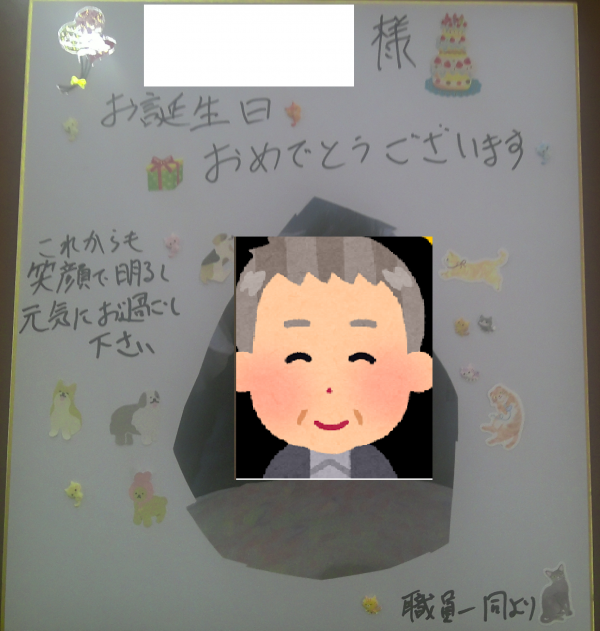 様
お誕生日
おめでとうございます
これからも
笑顔で明るく
元気にお過ごし
下さい
職員一同より